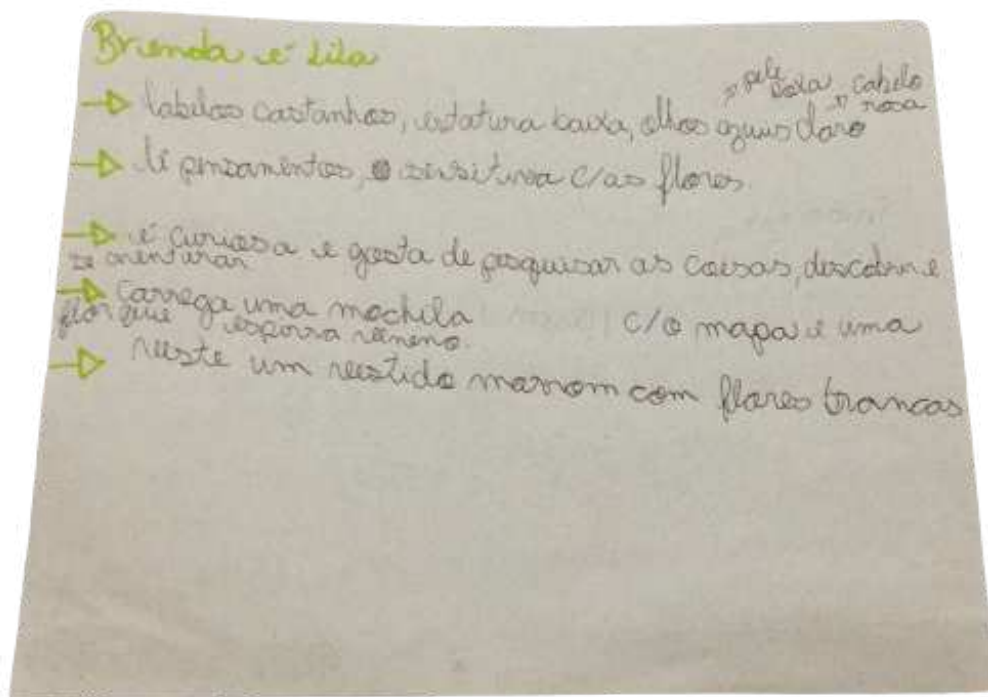 Brenda e Lila
pele roxa, cabelo
rosa
→ Cabelos castanhos, estatura baixa, olhos azuis claro
→ lê pensamentos, sensitiva c/as flores.
→ é curiosa e gosta de pesquisar as coisas, descobrir e
se aventurar
→ Carrega uma mochila c/o mapa e uma
flor que espirra veneno.
→ veste um vestido marrom com flores brancas